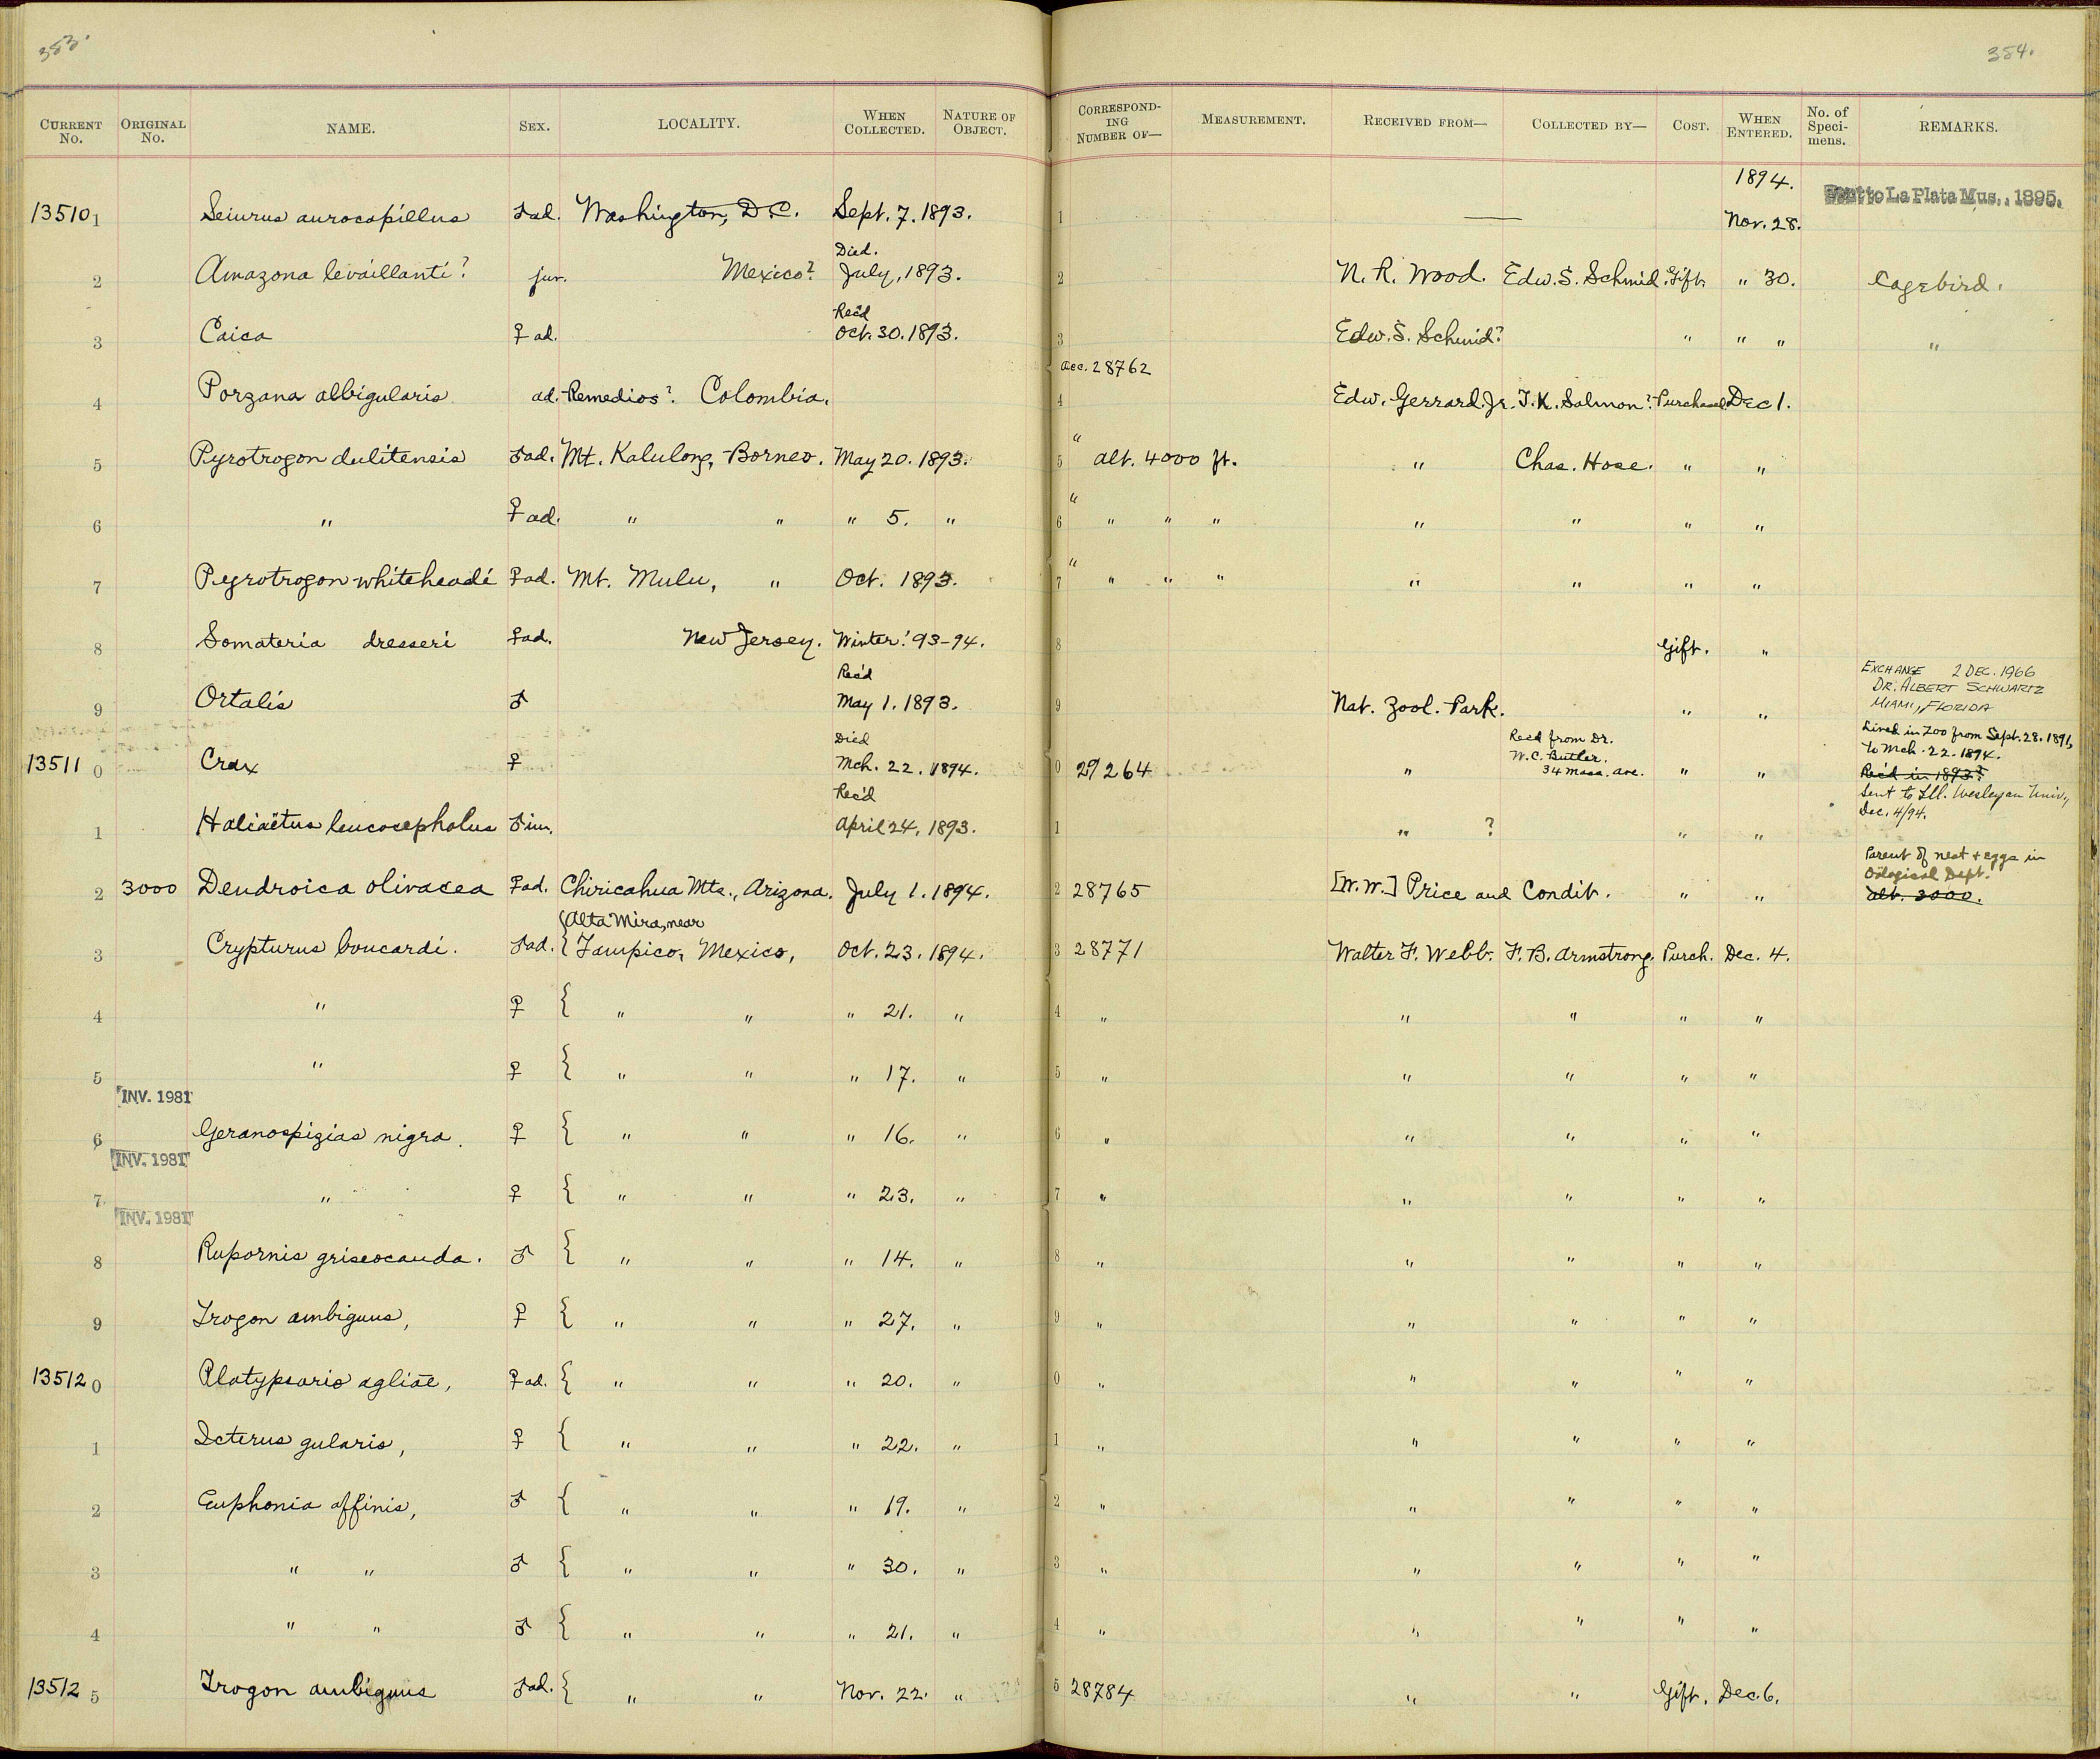 353.
354.
CURRENT No. ORIGINAL No. NAME. SEX. LOCALITY. WHEN COLLECTED. NATURE OF OBJECT. CORRESPONDING NUMBER OF— MEASUREMENT. RECEIVED FROM— COLLECTED BY— COST. WHEN ENTERED. No. of Specimens. REMARKS.
1894.
135101 Seiurus aurocapillus ♂ad. Washington, D.C. Sept. 7. 1893. 1 — Nov. 28. Sent to La Plata Mus., 1895.
Died.
2 Amazona levaillanti? juv. Mexico? July, 1893. 2 N. R. Wood. Edw. S. Schmid. Gift. " 30. Cagebird.
Rec'd
3 Caica ♀ ad. Oct. 30. 1893. 3 Edw. S. Schmid? " " " "
Acc. 28762
4 Porzana albigularis ad. Remedios? Colombia. 4 Edw. Gerrard. Jr. T. K. Salmon? Purchased Dec 1.
"
5 Pyrotrogon dulitensis ♂ad. Mt. Kalulong, Borneo. May 20. 1893. 5 alt. 4000 ft. " Chas. Hose. " "
"
6 " ♀ ad. " " " 5. " 6 " " " " " " "
"
7 Pyrotrogon whiteheadi ♀ad. Mt. Mulu, " Oct. 1893. 7 " " " " " " "
8 Somateria dresseri ♀ad. New Jersey. Winter '93-94. 8 Gift. "
Rec'd
EXCHANGE 2 DEC. 1966
DR. ALBERT SCHWARTZ
MIAMI, FLORIDA
9 Ortalis ♂ May 1. 1893. 9 Nat. Zool. Park. " "
Died
Recd from Dr.
W. C. Butler.
34 Mass. Ave.
Lived in Zoo from Sept. 28. 1891,
to Mch. 22. 1894.
135110 Crax ♀ Mch. 22. 1894. 0 29264 " " "
Rec'd in 1893?
Rec'd
Sent to Ill. Wesleyan Univ.,
Dec. 4/94.
1 Haliaëtus leucocephalus ♂im. April 24, 1893. 1 " ? " "
Parent of nest + eggs in
Oölogical Dept.
2 3000 Dendroica olivacea ♀ad. Chiricahua Mts., Arizona. July 1. 1894. 2 28765 [W. W.] Price and Condit. " " alt. 3000.
{Alta Mira, near
3 Crypturus boucardi. ♂ad. { Tampico, Mexico, Oct. 23. 1894. 3 28771 Walter F. Webb. F. B. Armstrong. Purch. Dec. 4.
4 " ♀ { " " " 21. " 4 " " " " "
5 " ♀ { " " " 17. " 5 " " " " "
INV. 1981
6 Geranospizias nigra. ♀ { " " " 16. " 6 " " " " "
INV. 1981
7 " ♀ { " " " 23. " 7 " " " " "
INV. 1981
8 Rupornis griseocauda. ♂ { " " " 14. " 8 " " " " "
9 Trogon ambiguus, ♀ { " " " 27. " 9 " " " " "
135120 Platypsaris agliæ, ♀ad. { " " " 20. " 0 " " " " "
1 Icterus gularis, ♀ { " " " 22. " 1 " " " " "
2 Euphonia affinis, ♂ { " " " 19. " 2 " " " " "
3 " " ♂ { " " " 30. " 3 " " " " "
4 " " ♂ { " " " 21. " 4 " " " " "
135125 Trogon ambiguus ♂ad. { " " Nov. 22. " 5 28784 " " Gift. Dec. 6.